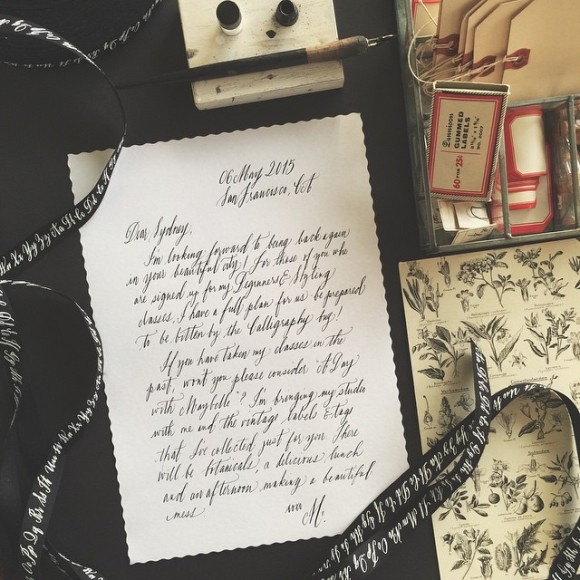 06 May 2015
San Francisco, CA
Dear Sydney,
I'm looking forward to being back again
in your beautiful city! For those of you who
are signed up for my Beginners & Styling
classes, I have a full plan for us: be prepared
to be bitten by the Calligraphy bug!
If you have taken my classes in the
past, won't you please consider "A Day
with Maybelle"? I'm bringing my studio
with me and the vintage labels & tags
that I've collected just for you. There
will be botanicals, a delicious lunch
and an afternoon making a beautiful
mess.
xoxo
M.
Dennison
GUMMED
LABELS
60 FOR 25¢